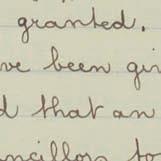 granted.
ve been gi
d that an
ncillor to